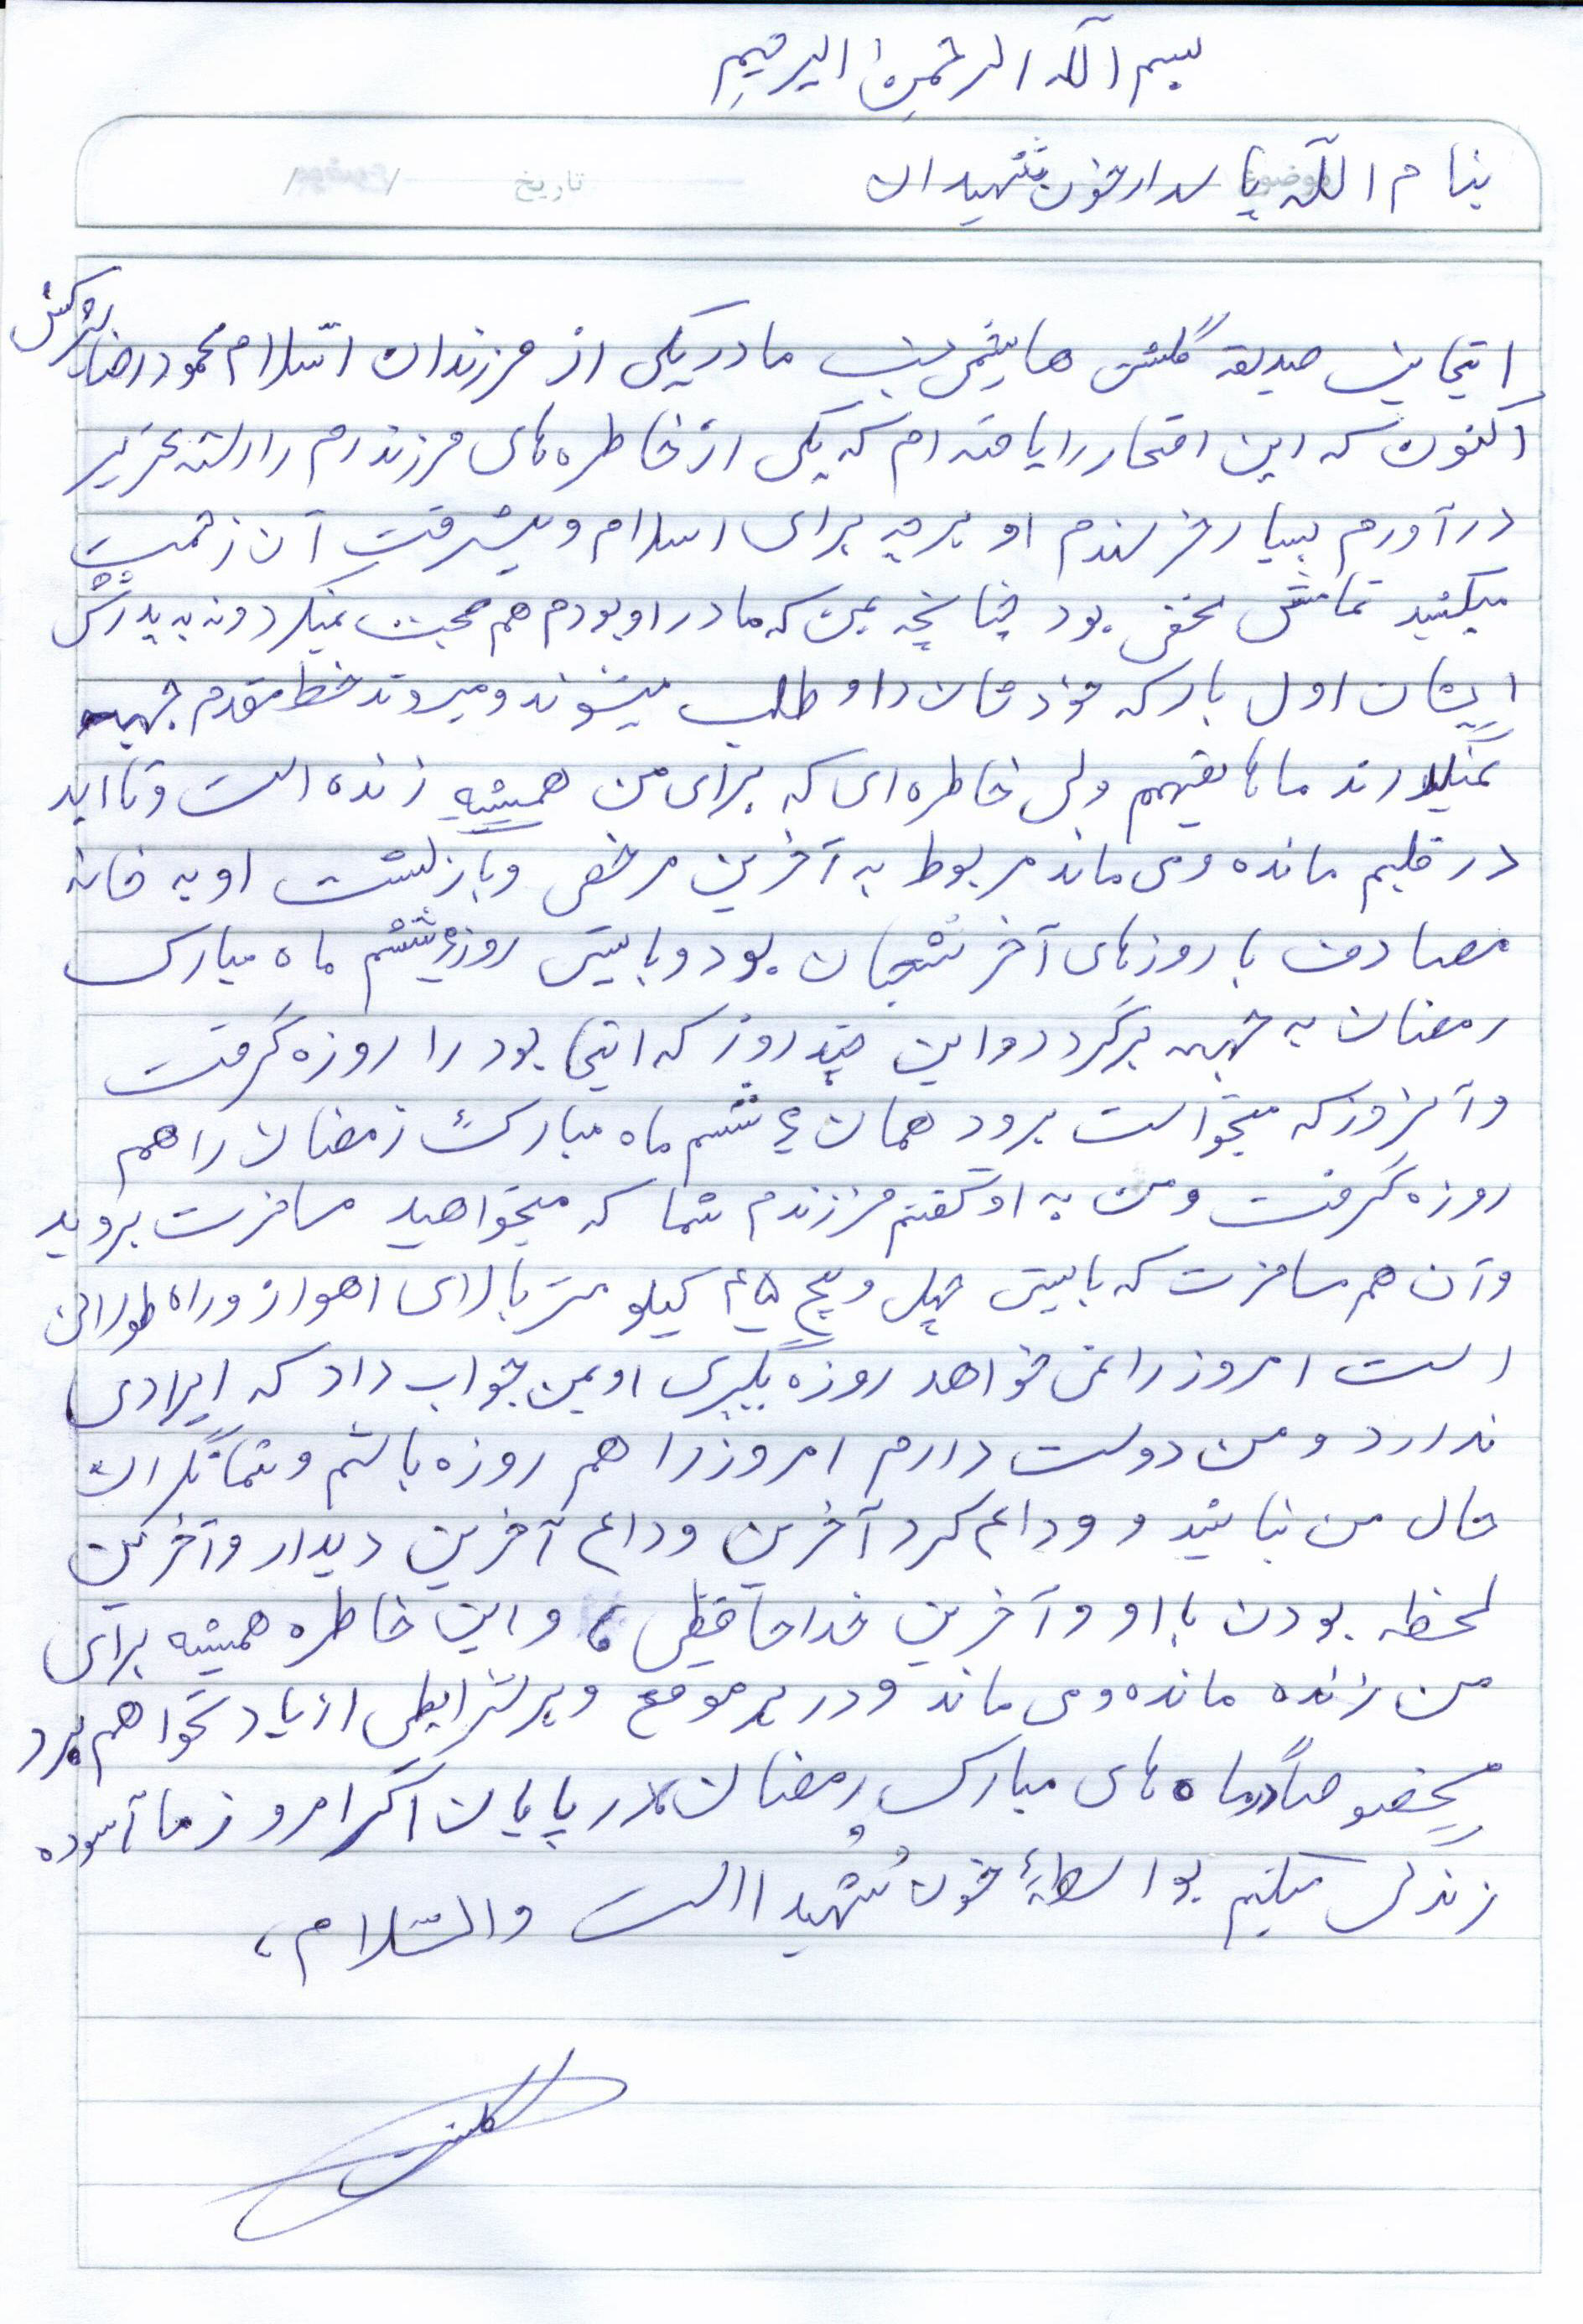 بسم الله الرحمن الرحیم
بنام الله پاسدار خون شهیدان
موضوع تاریخ
اینجانب صدیقه گلشن هاشمی نسب مادر یکی از فرزندان اسلام محمود رضا
اکنون که این افتخار را یافته ام که یکی از خاطره های فرزندم را رشته تحریر
درآورم بسیار فرزندم او هر چه برای اسلام و پیشرفت آن زحمت
میکشید تمامش مخفی بود چنانچه بمن که مادر او بودم هم صحبت نمیکرد و نه به پدرش
ایشان اول بار که خودشان داوطلب میشوند و میروند خط مقدم جبهه
نمیگذارند ماها بفهمیم ولی خاطره ای که برای من همیشه زنده است و تا ابد
در قلبم مانده و می ماند مربوط به آخرین مرخصی و بازگشت او به خانه
مصادف با روزهای آخر شعبان بود و بایستی روز ۶ ششم ماه مبارک
رمضان به جبهه برگردد و این چند روز که اینجا بود را روزه گرفت
و آنروز که میخواست برود همان ۶ ششم ماه مبارک رمضان را هم
روزه گرفت و من به او گفتم فرزندم شما که میخواهید مسافرت بروید
و آن هم مسافرت که بایستی چهل و پنج ۴۵ کیلو متر بالای اهواز و راه طولانی
است امروز را نمی خواهد روزه بگیری او بمن جواب داد که ایرادی
ندارد و من دوست دارم امروز را هم روزه باشم و شما نگران
حال من نباشید و وداع کرد آخرین وداع آخرین دیدار و آخرین
لحظه بودن با او و آخرین خداحافظی، و این خاطره همیشه برای
من زنده مانده و می ماند و در هر موقع و هر شرایطی از یاد نخواهم برد
مخصوصاً در ماه های مبارک رمضان و در پایان اگر امروز ما آسوده
زندگی میکنیم بواسطهٔ خون شهدا است والسّلام،
گلشن